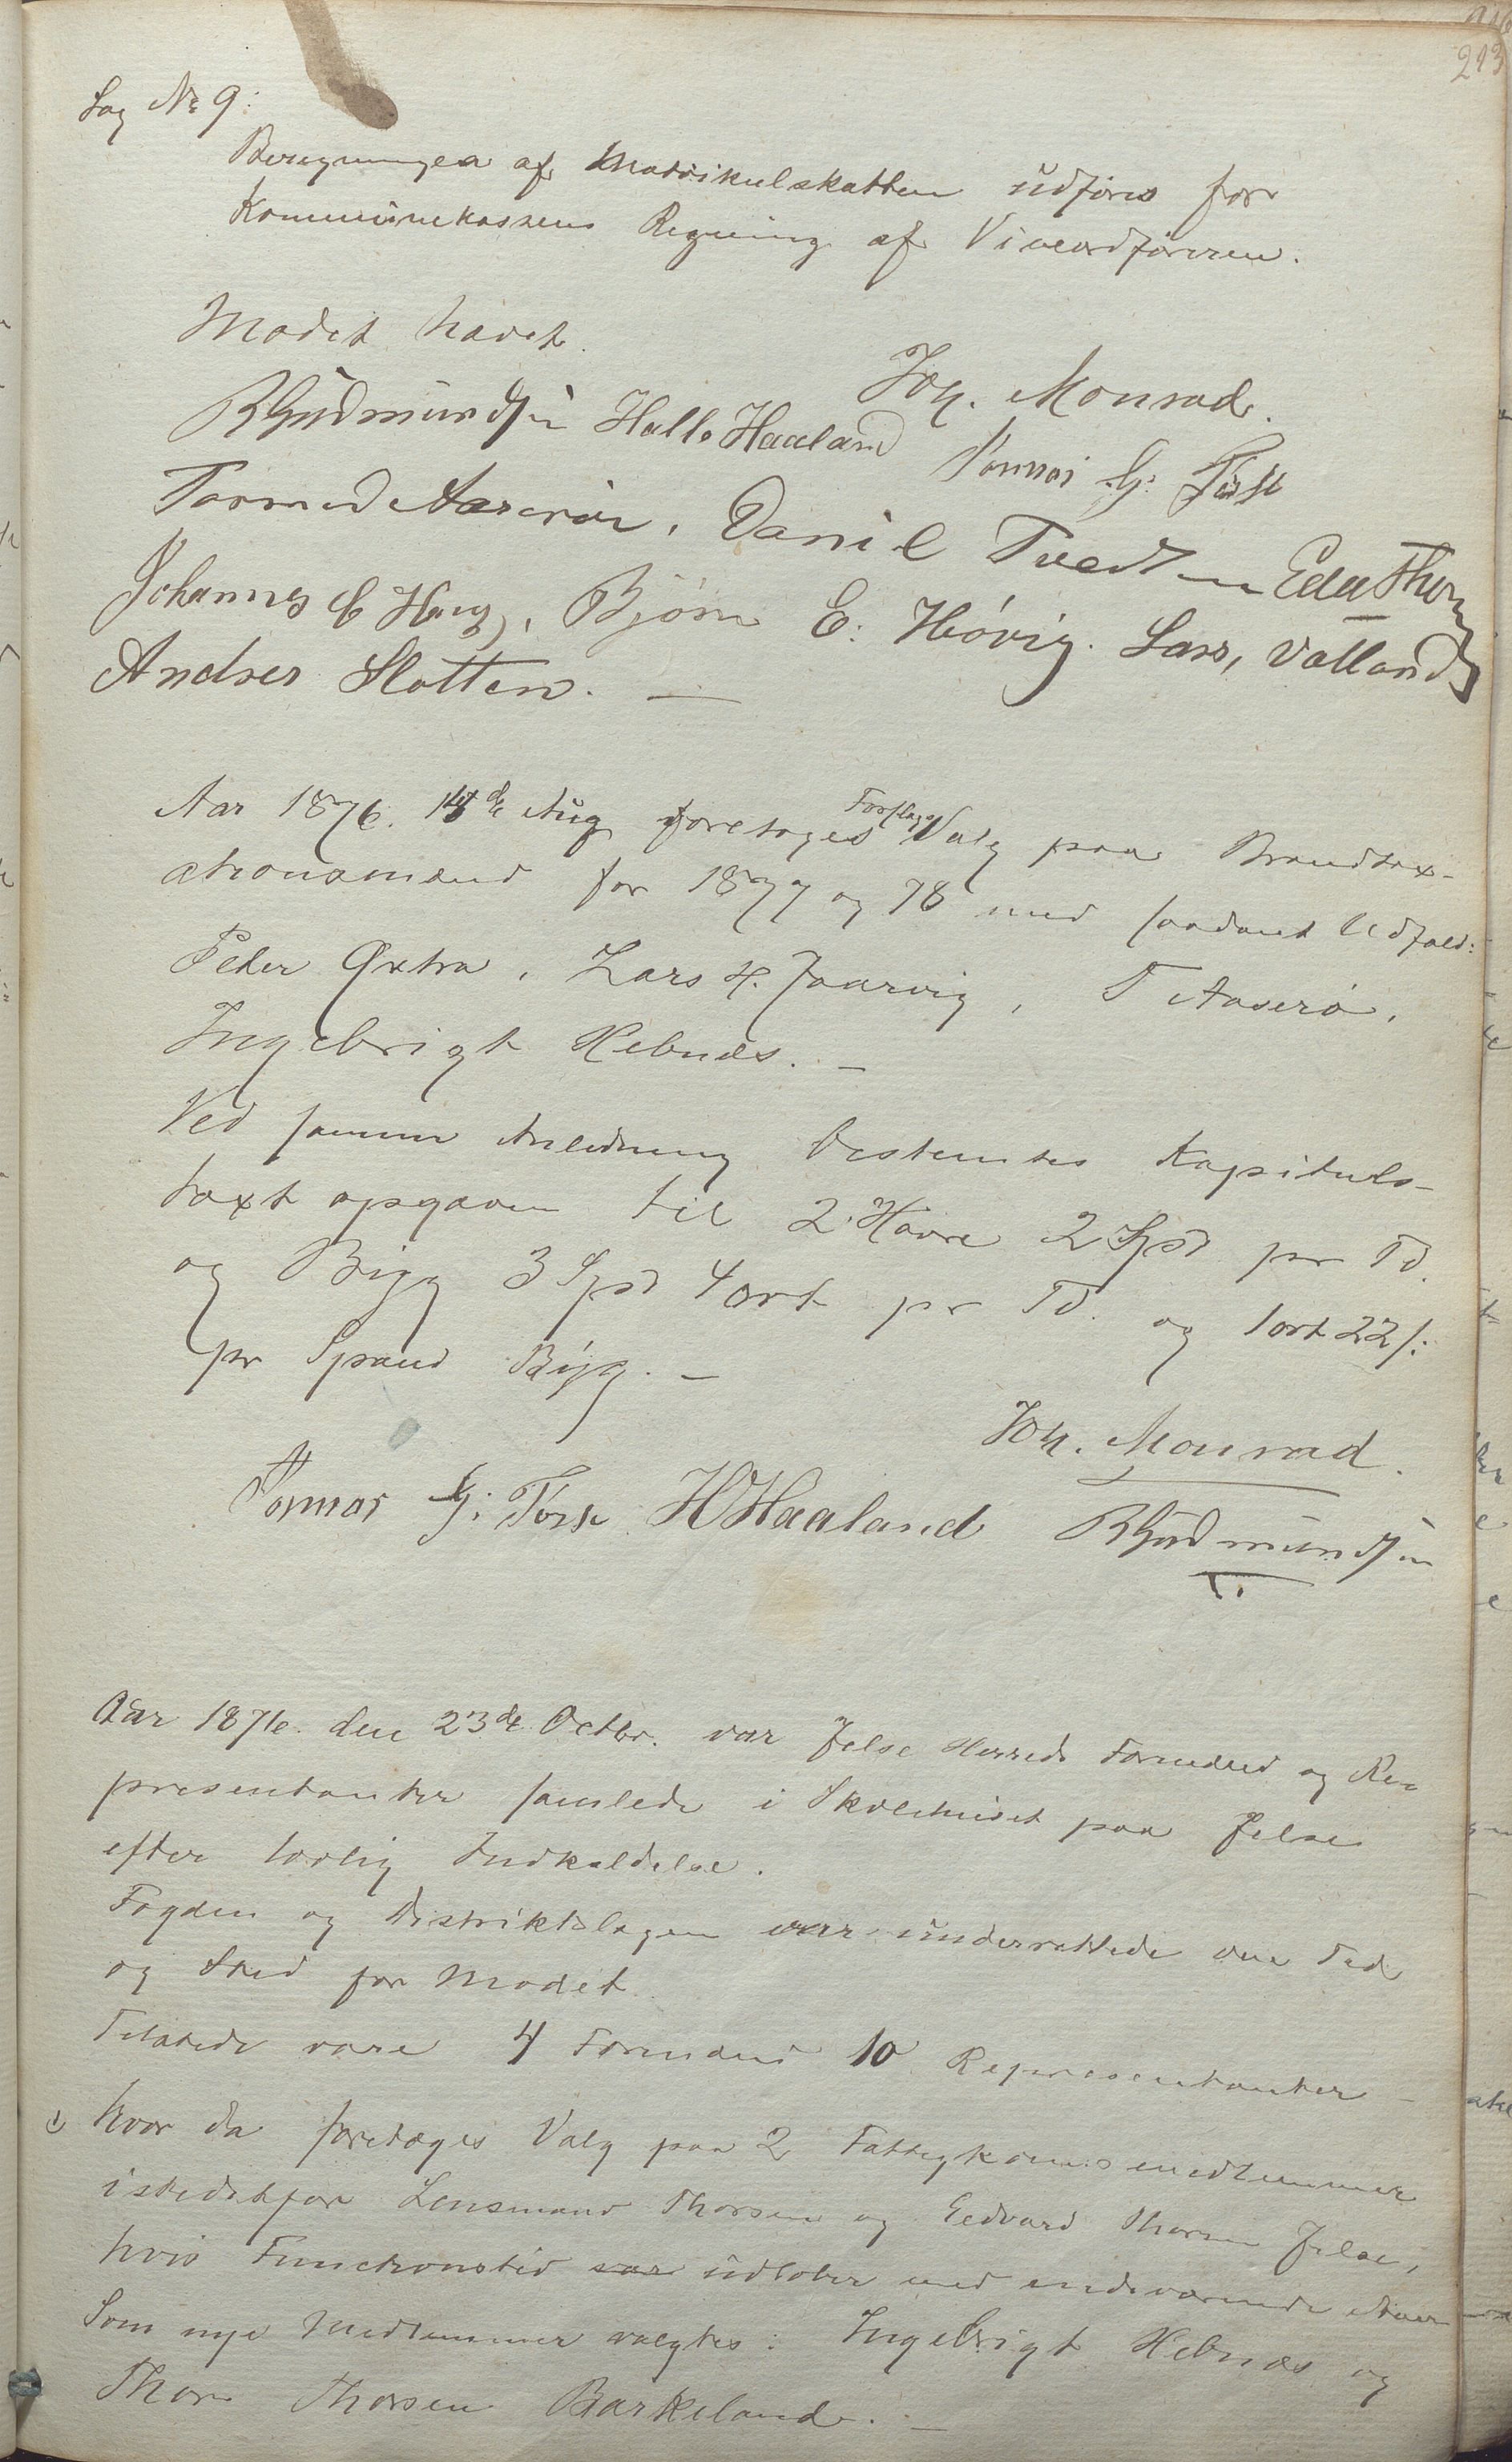 213
Sag No 9:
Beregningen af Matrikulskatten udføres for
Kommunekassens Regning af Viceordføreren.
Mødet hævet.
Joh. Monrad.
RGudmundsen Halle Haaland Tønnas G. Foss
Tormod Aaserøe, Daniel Tvedten Eder Thor
Johannes E Haug, Bjørn E. Høvig. Lars, Valland
Andreas Slotten. —
Aar 1876. 14de Aug foretoges Forslags Valg paa Brandtax-
ationsmænd for 1877 og 78 med saadant Udfald:
Peder Øxtra, Lars H. Jaarvig, T Aaserø,
Ingebrigt Hebnes. —
Ved samme Anledning bestemtes Kapituls-
taxt opgaven til 2 Havre 2 Spd pr Td.
og Bygg 3 Spd 4 ort pr Td. og 1 ort 22 s:
pr Spand Byg. —
Joh. Monrad.
Tønnas G. Foss HHaaland RGudmundsen
Aar 1876. den 23de Octbr. var Jelse Herreds Formænd og Re-
præsentanter samlede i Skolehuset paa Jelse
efter lovlig Indkaldelse.
Fogden og Distriktslægen var underrettede om Tid
og Sted for Mødet.
Tilstede vare 4 Formænd 10 Repræsentanter —
1) hvor da foretoges Valg paa 2 Fattigkoms medlemmer
istedetfor Lensmand Thorsen og Eedvard Thorsen Jelse,
hvis Functionstid var udløber med indeværende Aar
Som nye Medlemmer valgtes: Ingebrigt Hebnes og
Thor Thorsen Barkeland. —